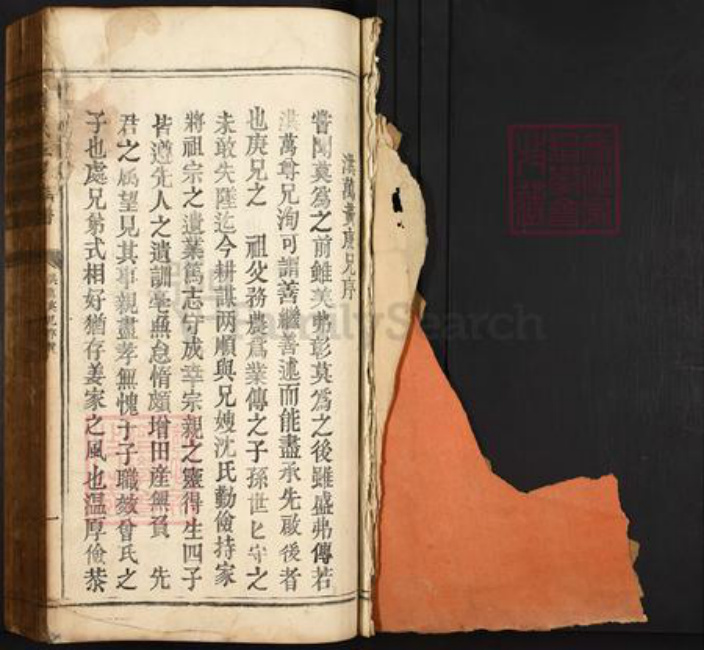 漢萬黃庚兄序
嘗聞莫為之前雖美弗彰莫為之後雖盛弗傳若
漢萬尊兄洵可謂善繼善述而能盡承先啟後者
也庚兄之 祖父務農為業傳之子孫世匕守之
未敢失墜迄今耕謀两順與兄嫂沈氏勤儉持家
將祖宗之遺業篤志守成幸宗親之靈得生四子
皆遵先人之遺訓毫無怠惰頗增田産無負 先
君之 属望見其事親盡孝無愧于子職效曾氏之
子也處兄弟式相好猶存姜家之風也温厚儉恭
FamilySearch